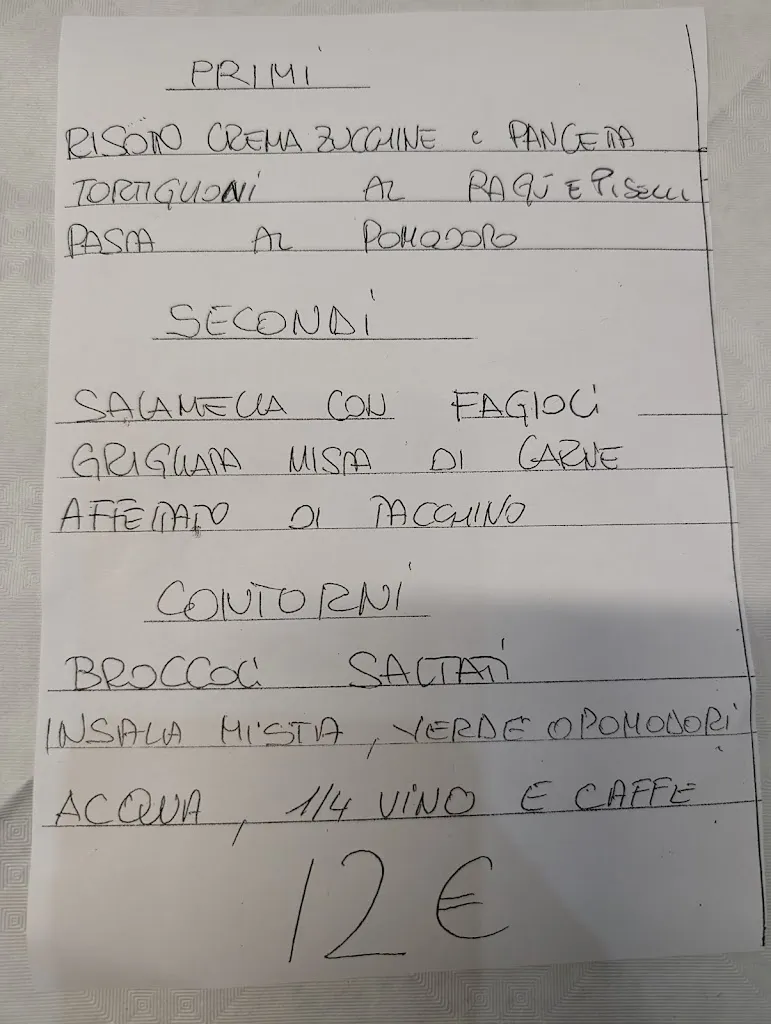 PRIMI
RISOTTO CREMA ZUCCHINE e PANCETTA
TORTIGLIONI AL RAGÙ E PISELLI
PASTA AL POMODORO
SECONDI
SALAMELLA CON FAGIOLI
GRIGLIATA MISTA DI CARNE
AFFETTATO DI TACCHINO
CONTORNI
BROCCOLI SALTATI
INSALA MISTA, VERDE O POMODORI
ACQUA, 1/4 VINO E CAFFE
12 €